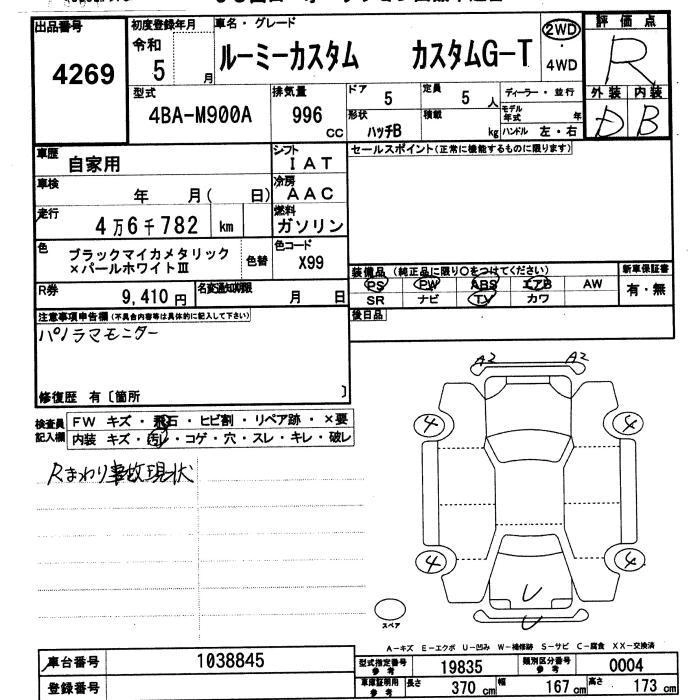 出品番号
4269
初度登録年月
令和
5 月
車名・グレード
ルーミーカスタム カスタムG-T
2WD
・
4WD
評価点
R
外装 内装
D B
型式
4BA-M900A
排気量
996
cc
ドア
5
定員
5 人
ディーラー・並行
モデル年式 年
形状
ハッチB
積載
kg
ハンドル 左・右
車歴
自家用
シフト
IAT
セールスポイント(正常に機能するものに限ります)
車検
年 月( 日)
冷房
AAC
走行
4万6千782 km
燃料
ガソリン
色
ブラックマイカメタリック
×パールホワイトⅢ
色替
色コード
X99
装備品 (純正品に限り○をつけてください)
新車保証書
PS PW ABS エアB AW
有・無
SR ナビ TV カワ
R券
9,410円
名変通知期限
月 日
後日品
注意事項申告欄(不具合内容等は具体的に記入して下さい)
パノラマモニター
修復歴 有〔箇所 〕
検査員
記入欄
FW キズ・飛石・ヒビ割・リペア跡・×要
内装 キズ・汚レ・コゲ・穴・スレ・キレ・破レ
Rまわり事故現状
A2 A2
4 4
4 4
U
U
スペア
A-キズ E-エクボ U-凹み W-補修跡 S-サビ C-腐食 XX-交換済
車台番号
1038845
型式指定番号
参考
19835
類別区分番号
参考
0004
登録番号
車庫証明用
参考
長さ
370 cm
幅
167 cm
高さ
173 cm